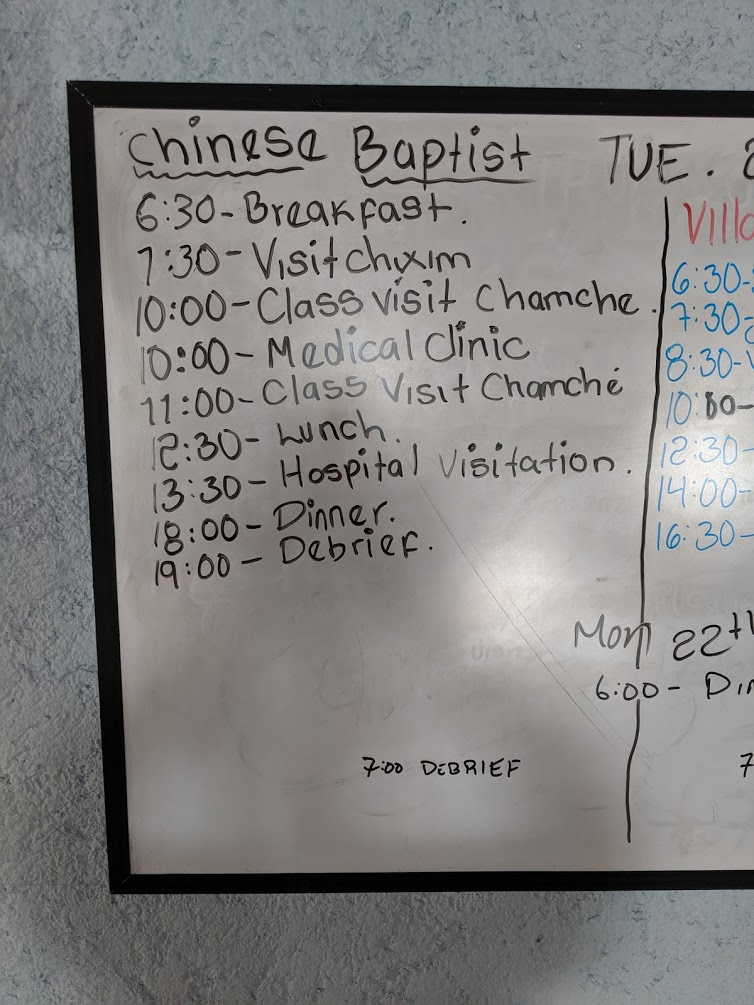 Chinese Baptist
6:30-Breakfast.
7:30-Visit Chixim
10:00-Class visit Chamche.
10:00-Medical Clinic
11:00-Class Visit Chamché
12:30-Lunch.
13:30-Hospital Visitation.
18:00-Dinner.
19:00-Debrief.
7:00 DEBRIEF
TUE.
6:30-
7:30-
8:30-
10:00-
12:30-
14:00-
16:30-
Mon 22th
6:00-